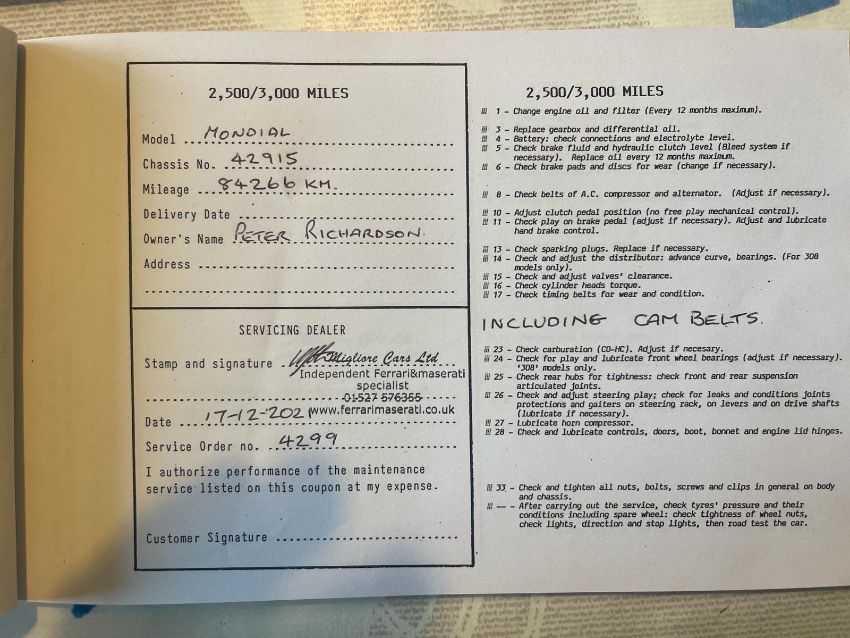 2,500/3,000 MILES
Model MONDIAL
Chassis No. 42915
Mileage 84266 KM.
Delivery Date
Owner's Name PETER RICHARDSON.
Address
SERVICING DEALER
Stamp and signature Migliore Cars Ltd
Independent Ferrari&maserati
specialist
01527 576355
www.ferrarimaserati.co.uk
Date 17-12-2021
Service Order no. 4299
I authorize performance of the maintenance
service listed on this coupon at my expense.
Customer Signature
2,500/3,000 MILES
1 - Change engine oil and filter (Every 12 months maximum).
3 - Replace gearbox and differential oil.
4 - Battery: check connections and electrolyte level.
5 - Check brake fluid and hydraulic clutch level (Bleed system if
necessary). Replace oil every 12 months maximum.
6 - Check brake pads and discs for wear (change if necessary).
8 - Check belts of A.C. compressor and alternator. (Adjust if necessary).
10 - Adjust clutch pedal position (no free play mechanical control).
11 - Check play on brake pedal (adjust if necessary). Adjust and lubricate
hand brake control.
13 - Check sparking plugs. Replace if necessary.
14 - Check and adjust the distributor: advance curve, bearings. (For 308
models only).
15 - Check and adjust valves' clearance.
16 - Check cylinder heads torque.
17 - Check timing belts for wear and condition.
INCLUDING CAM BELTS.
23 - Check carburation (CO-HC). Adjust if necesary.
24 - Check for play and lubricate front wheel bearings (adjust if necessary).
'308' models only.
25 - Check rear hubs for tightness: check front and rear suspension
articulated joints.
26 - Check and adjust steering play; check for leaks and conditions joints
protections and gaiters on steering rack, on levers and on drive shafts
(lubricate if necessary).
27 - Lubricate horn compressor.
28 - Check and lubricate controls, doors, boot, bonnet and engine lid hinges.
33 - Check and tighten all nuts, bolts, screws and clips in general on body
and chassis.
-- - After carrying out the service, check tyres' pressure and their
conditions including spare wheel: check tightness of wheel nuts,
check lights, direction and stop lights, then road test the car.